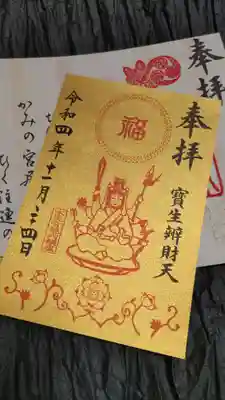 奉拝
寶生辨財天
福
令和四年十一月二十四日
奉拝
かみの宮居
ひく注連の